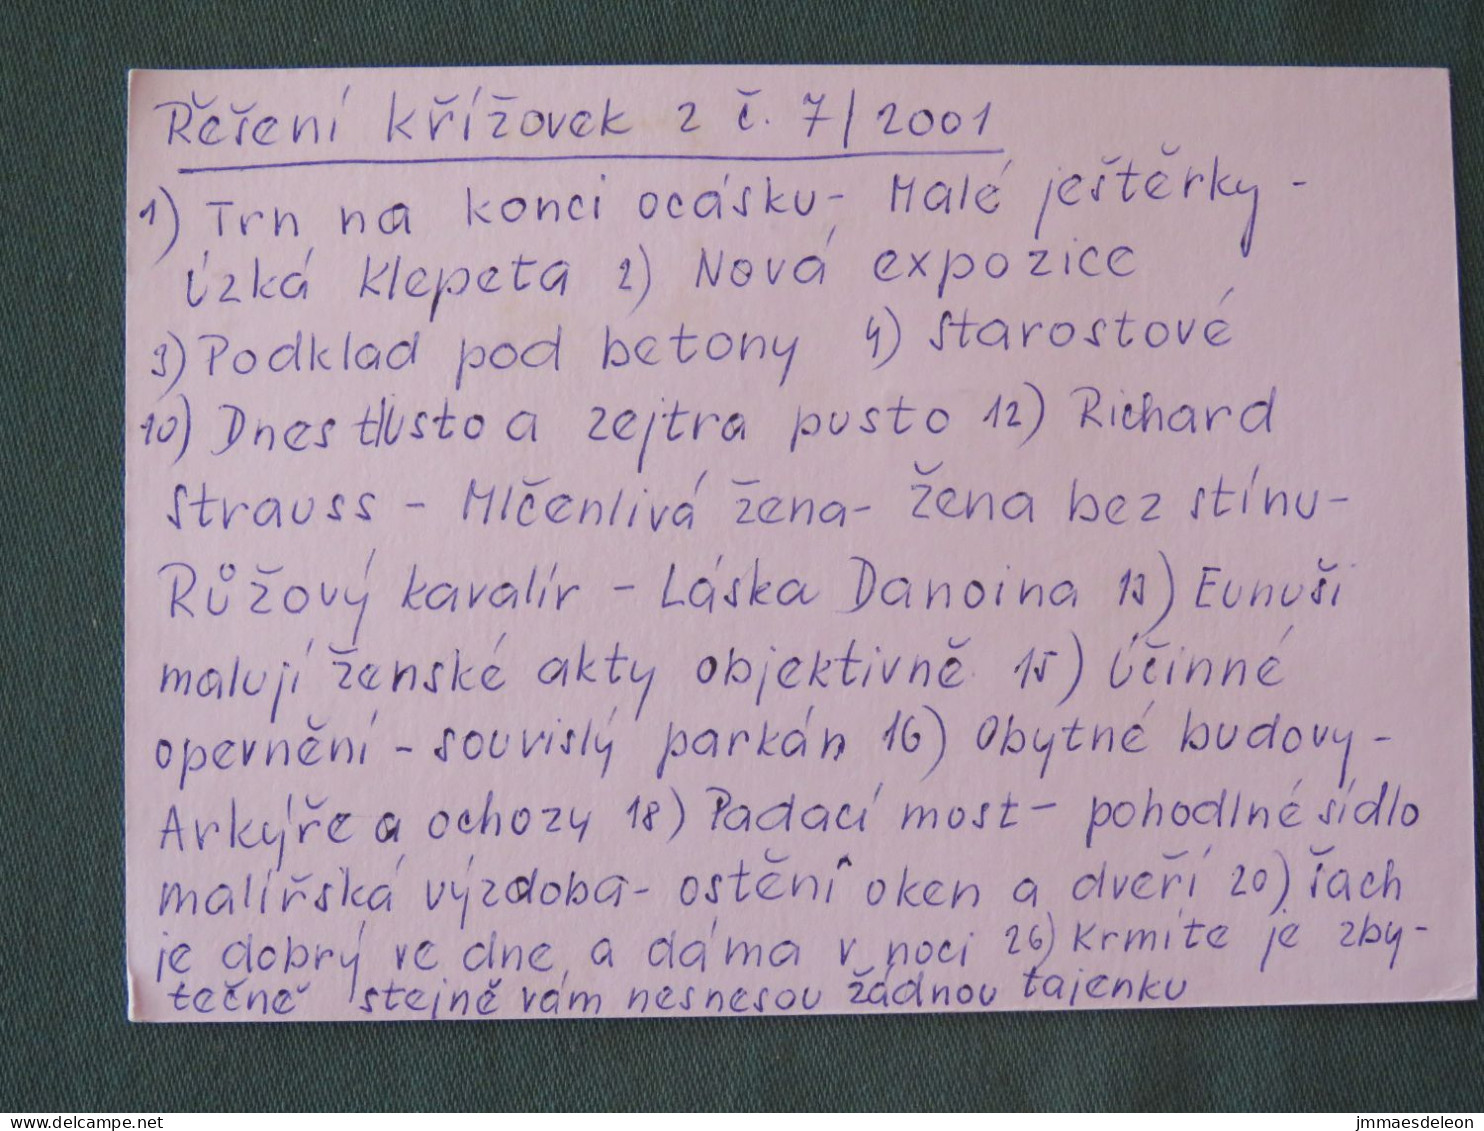 Řešení křížovek z č. 7/2001
1) Trn na konci ocásku - Malé ještěrky -
úzká klepeta 2) Nová expozice
3) Podklad pod betony 4) starostové
10) Dnes tlusto a zejtra pusto 12) Richard
Strauss - Mlčenlivá žena - žena bez stínu -
Růžový kavalír - Láska Danoina 13) Eunuši
malují ženské akty objektivně 15) Účinné
opevnění - souvislý parkán 16) Obytné budovy -
Arkýře a ochozy 18) Padací most - pohodlné sídlo
malířská výzdoba - ostění oken a dveří 20) šach
je dobrý ve dne, a dáma v noci 26) Krmíte je zby-
tečně stejně vám nesnesou žádnou tajenku
www.delcampe.net
jmmaesdeleon